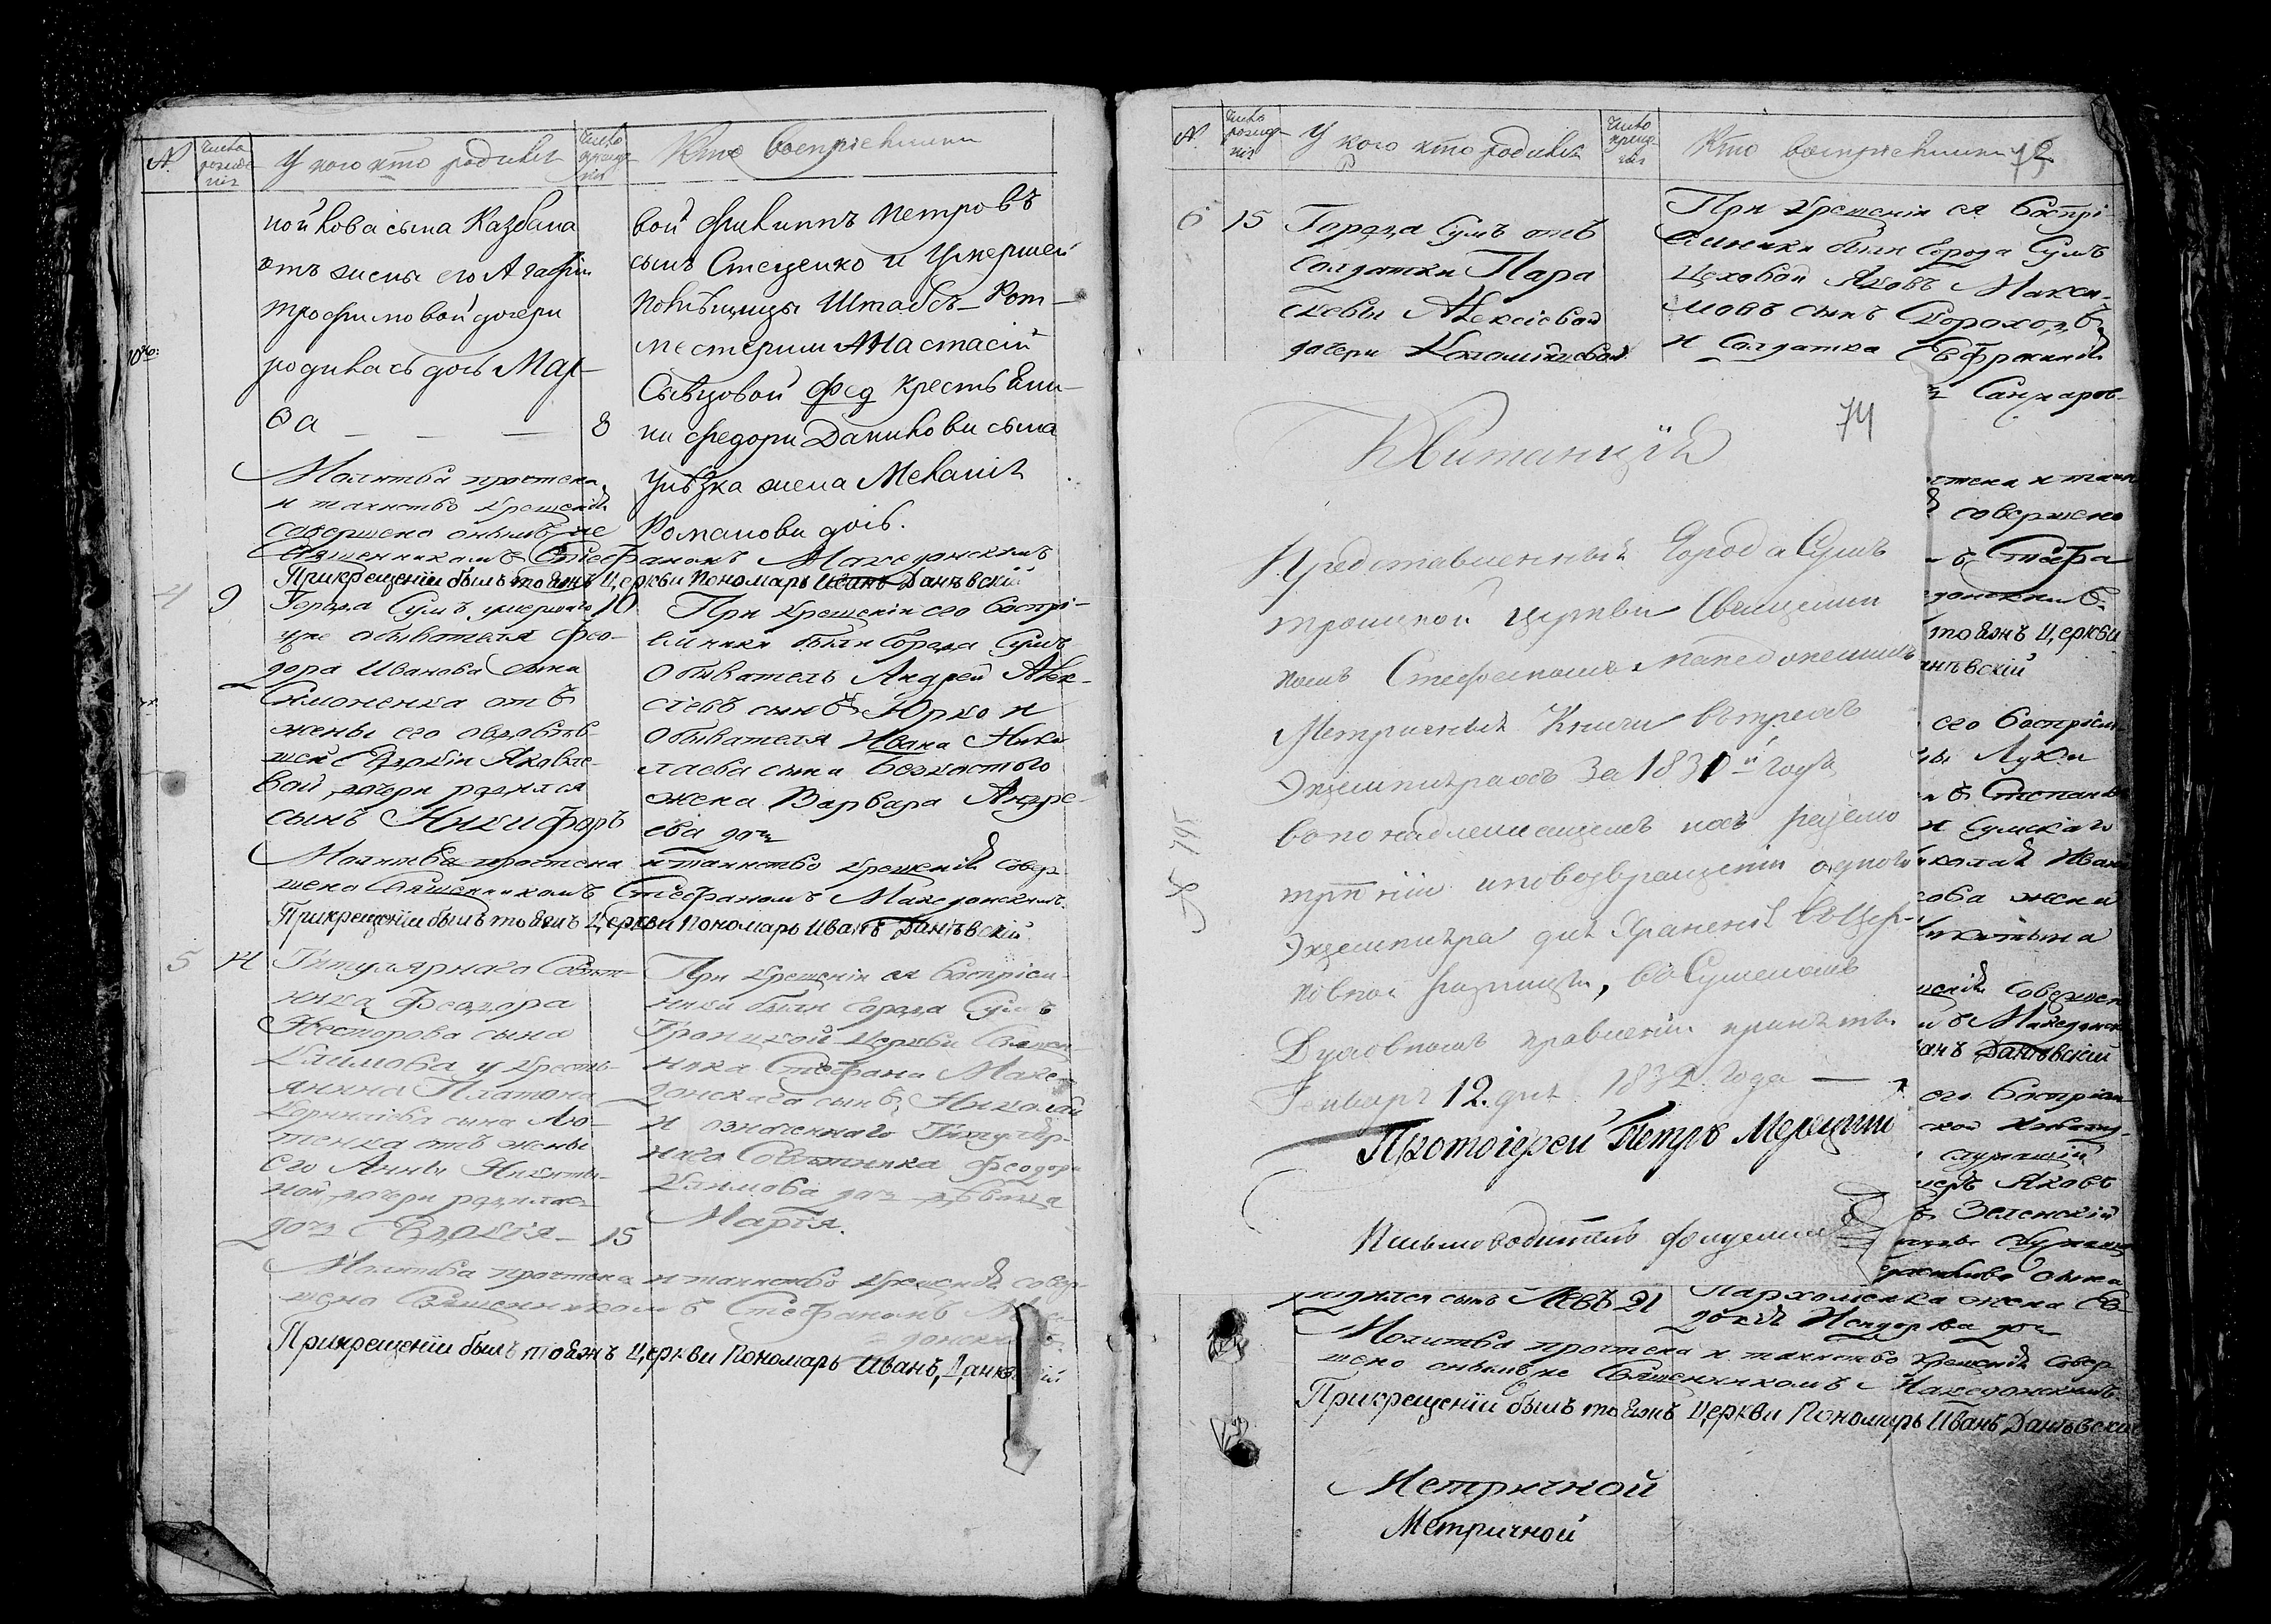 № Число рожде- нія У кого кто родился Число креще- нія Кто воспріемники
мойлова сына Казбана
отъ жены его Агафіи
трофимовой дочери
родилась дочь Мар-
ѳа — — — 8
вой Филиппъ Петровъ
сынъ Стеценко и умершей
помѣщицы Штабсъ-Рот-
мистерши Анастасіи
Савѣцовой фед крестьяни-
на Федора Данилова сына
жена Меланія
Романова дочь.
Молитва прочтена
и таинство крещенія
совершено онымъ же
Священникомъ Стефаномъ Македонскимъ
При крещеніи былъ тояжъ Церкви Пономарь Иванъ Данѣвскій
4 9 Города Сумъ умершаго 10
уже обывателя Фео-
дора Иванова сына
Симоненка отъ
жены его овдовѣв-
шей Евдокіи Яковле-
вой дочери родился
сынъ Никифоръ
При крещеніи его воспрі-
емники были города Сумъ
обыватель Андрей Алек-
сѣевъ сынъ Юрко и
обывателя Ивана Нико-
лаева сына Безкостого
жена Варвара Андре-
ева дочь
Молитва прочтена и таинство крещенія совер-
шено Священникомъ Стефаномъ Македонскимъ.
При крещеніи былъ тояжъ Церкви Пономарь Иванъ Данѣвскій
5 14 Титулярнаго Совѣт-
ника Феодора
Несторова сына
Климова у кресть-
янина Платона
Корнилієва сына Лю-
тенка отъ жены
его Анны Никити-
ной дочери родилась
дочь Евдокія — 15
При крещеніи ея воспріем-
ники были города Сумъ
Троицкой Церкви Священ-
ника Стефана Маке-
донскаго сынъ Николай
и означеннаго Титуляр-
наго Совѣтника Феодора
Климова дочь дѣвица
Марія.
Молитва прочтена и таинство крещенія совер-
шено Священникомъ Стефаномъ Маке-
донскимъ.
При крещеніи былъ тояжъ Церкви Пономарь Иванъ Данѣвскій
№ Число рожде- нія У кого кто родился Число креще- нія Кто воспріемники
6 15 Города Сумъ отъ
Солдатки Пара
скевы Алексіевой
дочери
При крещеніи ея воспрі-
емники были города Сумъ
Цеховой Яковъ Макси-
мовъ сынъ Скороходъ
и Солдатка Евфросинія
74
Квитанція
Представленный Города Сумъ
троицкой церкви Священни
комъ Стефаномъ Македонскимъ
Метричныя Книги въ трехъ
Экземплярахъ За 1831й годъ
экземпляра для Храненія въ Цер-
ковной ризницѣ, въ Сумскомъ
Духовномъ правленіи принялъ.
Генваря 12. дня 1832 года —
Протоіерей Петръ
Письмоводитель
прочтена и таин
совершено
Стефа
тояжъ Церкви
Данѣвскій
его воспріем
Луки
Степанъ
и Сумскаго
Николая Ива
жена
совершен
Македонс
Иванъ Данѣвскій
его воспріем
Яковъ
Зеленскій
сына
родился сынъ Левъ 21 Пархоменка жена Ев-
докія дочь
Молитва прочтена и таинство крещенія совер-
шено онымъ же Священникомъ Македонскимъ
При крещеніи былъ тояжъ Церкви Пономарь Иванъ Данѣвскій
Метричной
Метричной